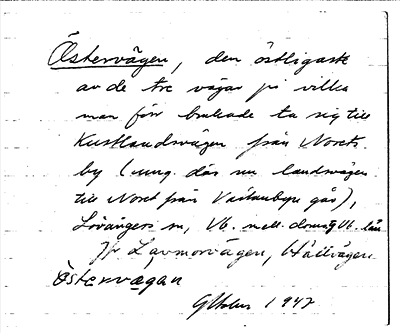 Östervägen, den östligaste
av de tre vägar på vilka
man förr brukade ta sig till
Kustlandsvägen från Norets-
by (ung. där nu landsvägen
till Noret från Västanbyn går),
Lövångers sn, Vb. mell. domsg Vb. län
Jfr Lavmorvägen, Hällvägen
Östervägan
1947